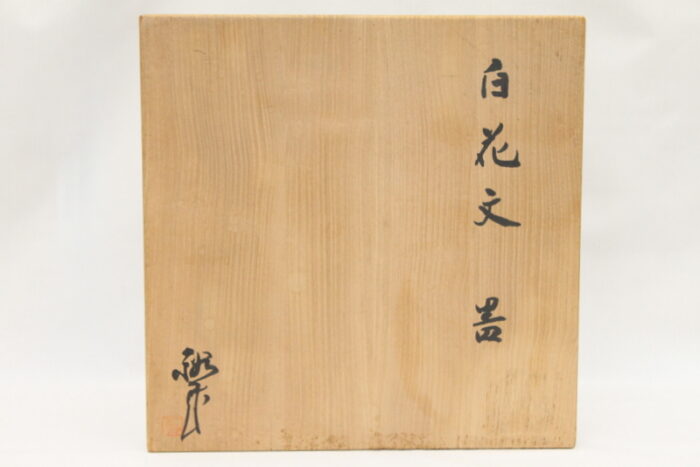 白花文 器